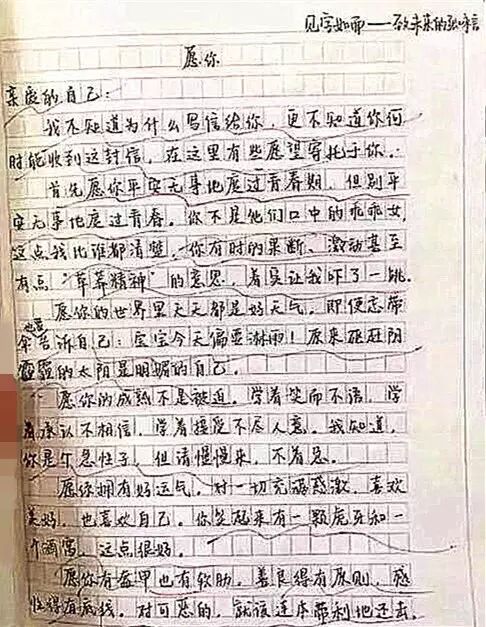 见字如面——致未来的张味言
愿你
亲爱的自己:
我不知道为什么写信给你,更不知道你何
时能收到这封信,在这里有些愿望寄托于你.:
首先愿你平安无事地度过青春期,但别平
安无事地度过青春。你不是他们口中的乖乖女,
这点我比谁都清楚,你有时的果断、激动甚至
有点“草莽精神”的意思,着实让我吓了一跳。
愿你的世界里天天都是好天气。即使忘带
伞也要告诉自己:宝宝今天偏要淋雨!原来驱赶阴
霾的太阳是明媚的自己。
愿你的成熟不是被迫。学着笑而不语,学
着承认不相信,学着接受不尽人意。我知道,
你是个急性子,但请慢慢来,不着急。
愿你拥有好运气。对一切充满感激,喜欢
美好,也喜欢自己。你笑起来有一颗虎牙和一
个酒窝,这点很好。
愿你有盔甲也有软肋。善良得有原则,感
性得有底线。对可恶的,就该连本带利地还去,